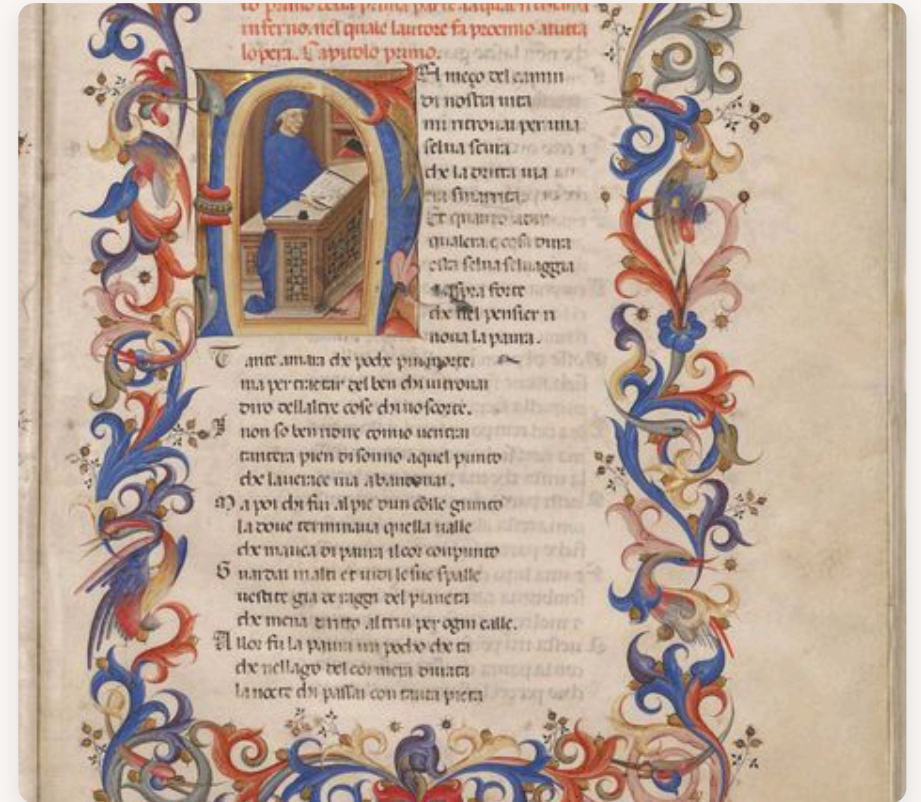 to primo della prima
inferno. nel quale lautore fa prohemio atutta
lopera. Capitolo primo.
el meço del camin
di nostra uita
mi ritrouai per una
selua scura
che la dritta uia
era smarrita.
Et quanto adir
qualera e cosa dura
esta selua seluaggia
et aspra forte
che nel pensier ri
noua la paura.
Tante amara che poche piu morte
ma per tractar del ben chi ui trouai
diro dellaltre cose chi uo scorte.
I non so ben ridire comio uentrai
tantera pien di sonno aquel punto
che lauerace uia abandonai.
Ma poi chi fui al pie dun colle giunto
la doue terminaua quella ualle
che mauea di paura il cor conpunto
Guardai in alti et uidi le sue spalle
uestite gia de raggi del pianeta
che mena diritto altrui per ogni calle.
Allor fu la paura un pocho cheta
che nellago del cor mera durata
la nocte chi passai con tanta pieta